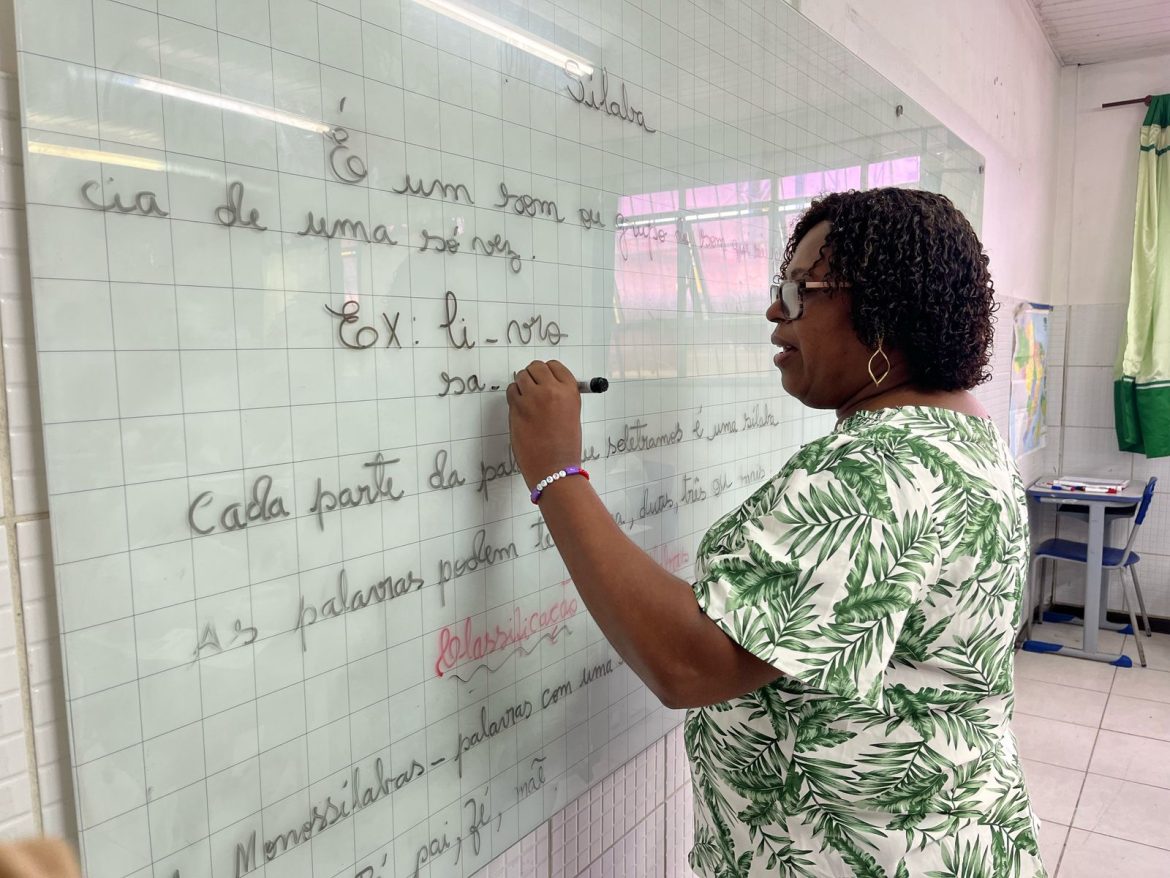 Sílaba
É um som ou grupo de som
cia de uma só vez.
Ex: li-vro
sa-
Cada parte da soletramos é uma sílaba
As palavras podem duas, três ou mais
Classificação
Monossílabas - palavras com uma
pai, fé, mãe